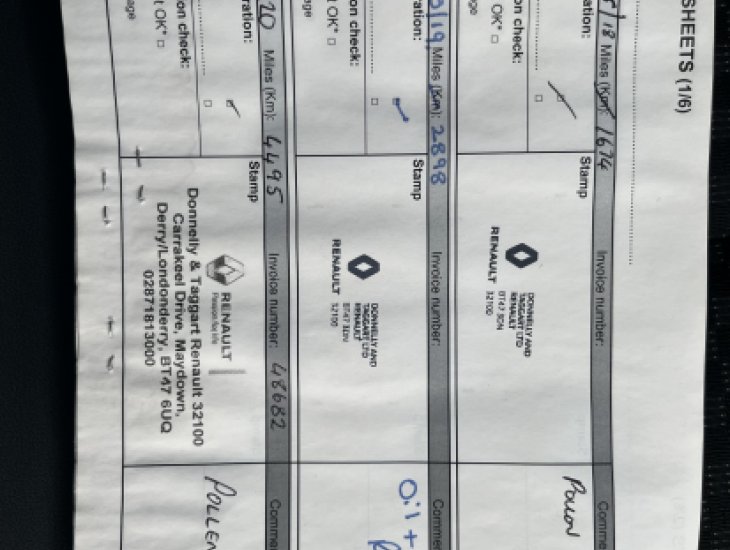 SHEETS (1/6)
/18 Miles (Km): 1674 Invoice number: Comme
ration: Stamp
on check:
t OK" □
DONNELLY AND
TAGGART LTD
RENAULT
BT47 3DN
32100
RENAULT
Pollen
0/19 Miles (Km): 2898 Invoice number: Comme
ration: Stamp
on check:
OK" □
age
DONNELLY AND
TAGGART LTD
RENAULT
BT47 3DN
32100
RENAULT
Oil +
20 Miles (Km): 4495 Invoice number: 48682 Comme
ration: Stamp
on check:
t OK" □
age
RENAULT
Donnelly & Taggart Renault 32100
Carrakeel Drive, Maydown,
Derry/Londonderry, BT47 6UQ
02871813000
POLLEN